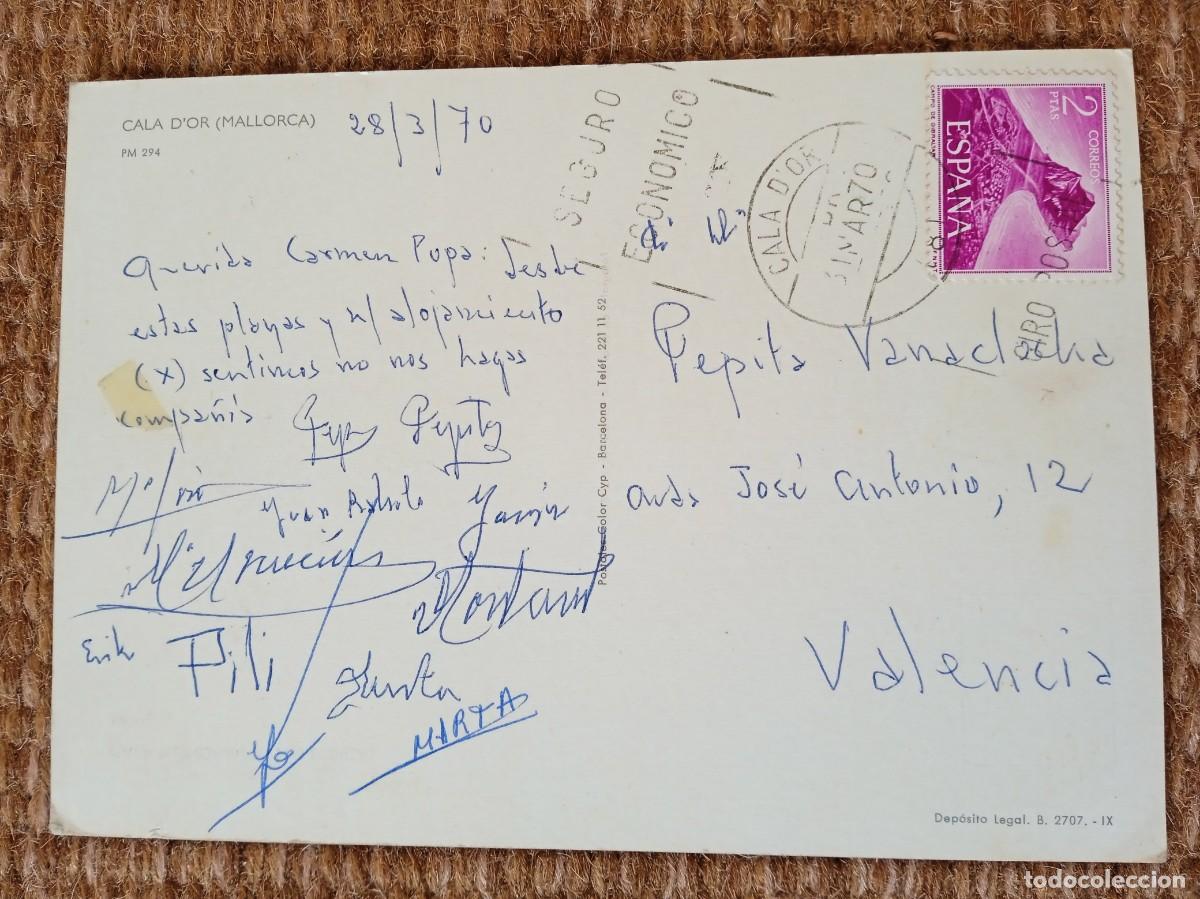 CALA D'OR (MALLORCA) 28/3/70
PM 294
Querida Carmen Pepa: desde
estas playas y n/ alojamiento
(x) sentimos no nos hagas
compañía
Pepe Pepita
Juan Javier
Montaut
Pili
MARTA
Postales Color Cyp - Barcelona - Teléf. 221 11 52
SEGURO
ECONOMICO
GIRO
CALA D'OR
31 MAR 70
2 PTAS
CORREOS
ESPAÑA
CAMPO DE GIBRALTAR
Pepita Vanaclocha
Avda José Antonio, 12
Valencia
Depósito Legal. B. 2707. - IX
todocoleccion